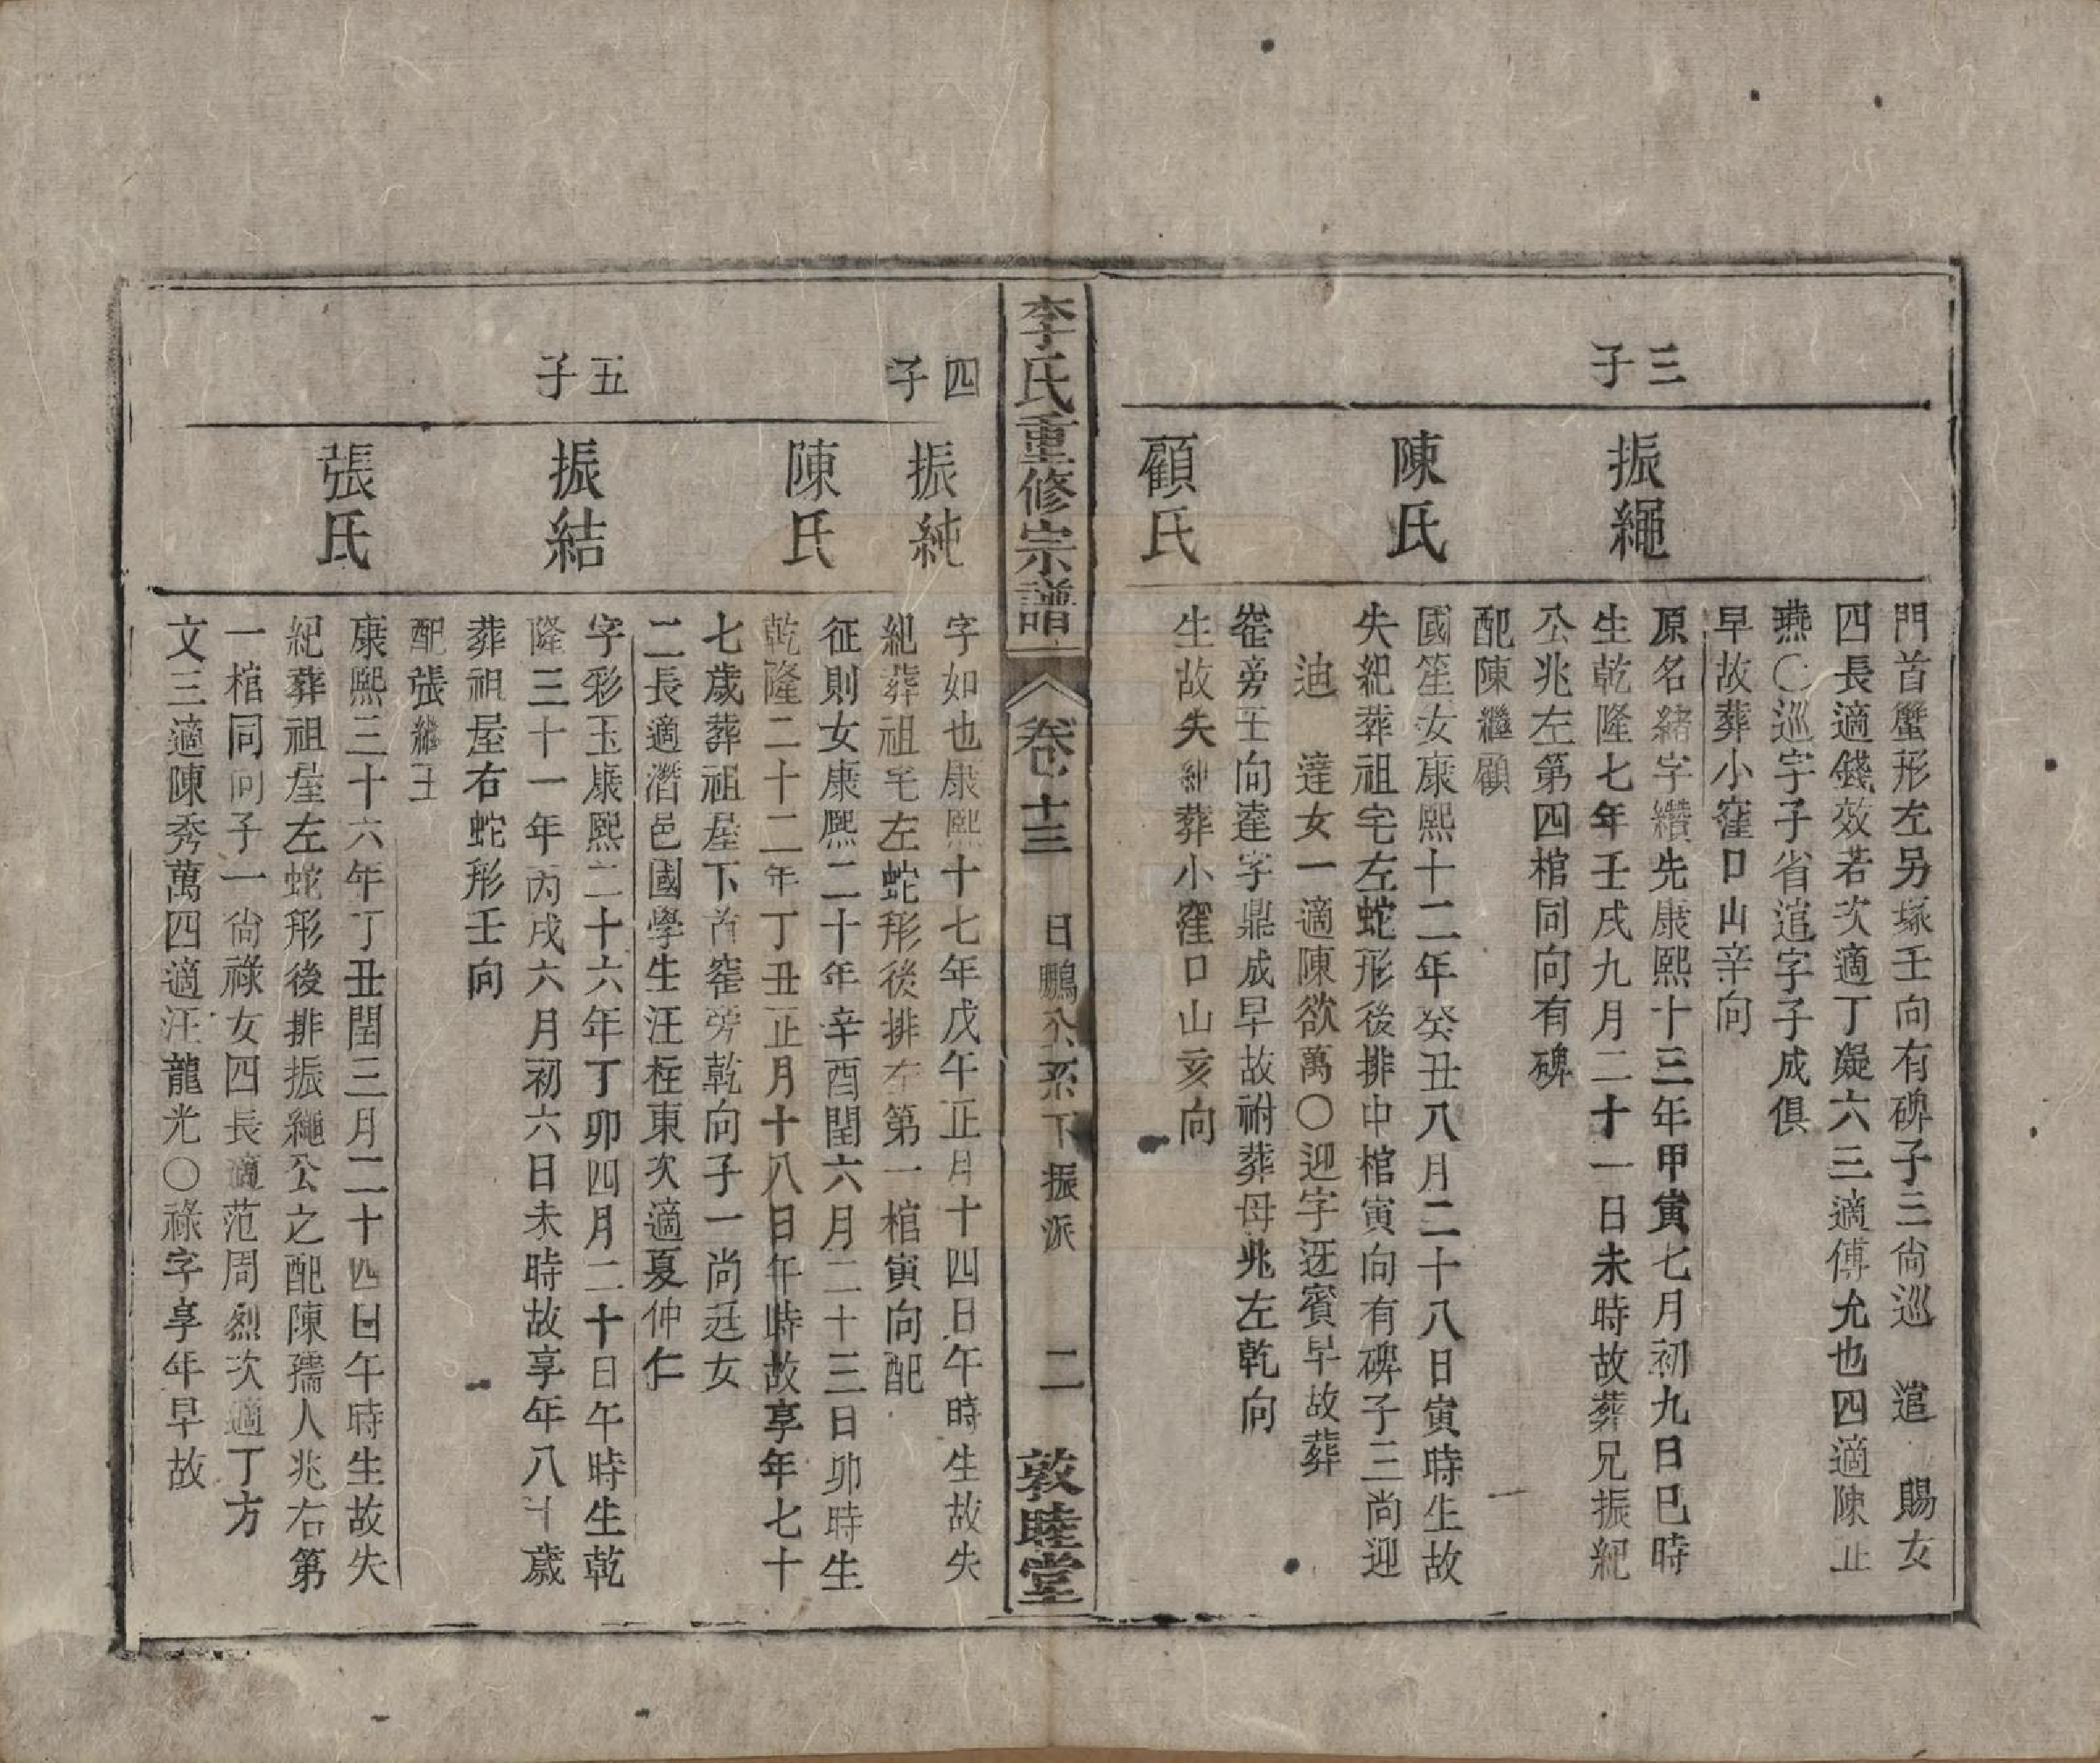 門首蟹形左另塚壬向有碑子三尙巡 逭 賜女
四長適錢效若次適丁凝六三適傅允也四適陳止
燕〇巡字子省逭字子成俱
早故葬小窪口山辛向
三子
振繩
原名緒字纘先康熙十三年甲寅七月初九日巳時
生乾隆七年壬戌九月二十一日未時故葬兄振紀
公兆左第四棺同向有碑
配陳繼顧
陳氏
國筀女康熙十二年癸丑八月二十八日寅時生故
失紀葬祖宅左蛇形後排中棺寅向有碑子三尚迎
迪 達女一適陳欲萬〇迎字迓賓早故葬
窰旁壬向達字鼎成早故祔葬母兆左乾向
顧氏
生故失紀葬小窪口山亥向
李氏重修宗譜 卷十三 日鵬公系下振派 二 敦睦堂
四子
振純
字如也康熙十七年戊午正月十四日午時生故失
紀葬祖宅左蛇形後排左第一棺寅向配
陳氏
征則女康熙二十年辛酉閏六月二十三日卯時生
乾隆二十二年丁丑正月十八日午時故享年七十
七歲葬祖屋下首窰旁乾向子一尚廷女
二長適潛邑國學生汪枉東次適夏仲仁
五子
振結
字彩玉康熙二十六年丁卯四月二十日午時生乾
隆三十一年丙戌六月初六日未時故享年八十歲
葬祖屋右蛇形壬向
配張繼王
張氏
康熙三十六年丁丑閏三月二十四日午時生故失
紀葬祖屋左蛇形後排振繩公之配陳孺人兆右第
一棺同向子一尙祿女四長適范周烈次適丁方
文三適陳秀萬四適汪龍光〇祿字享年早故